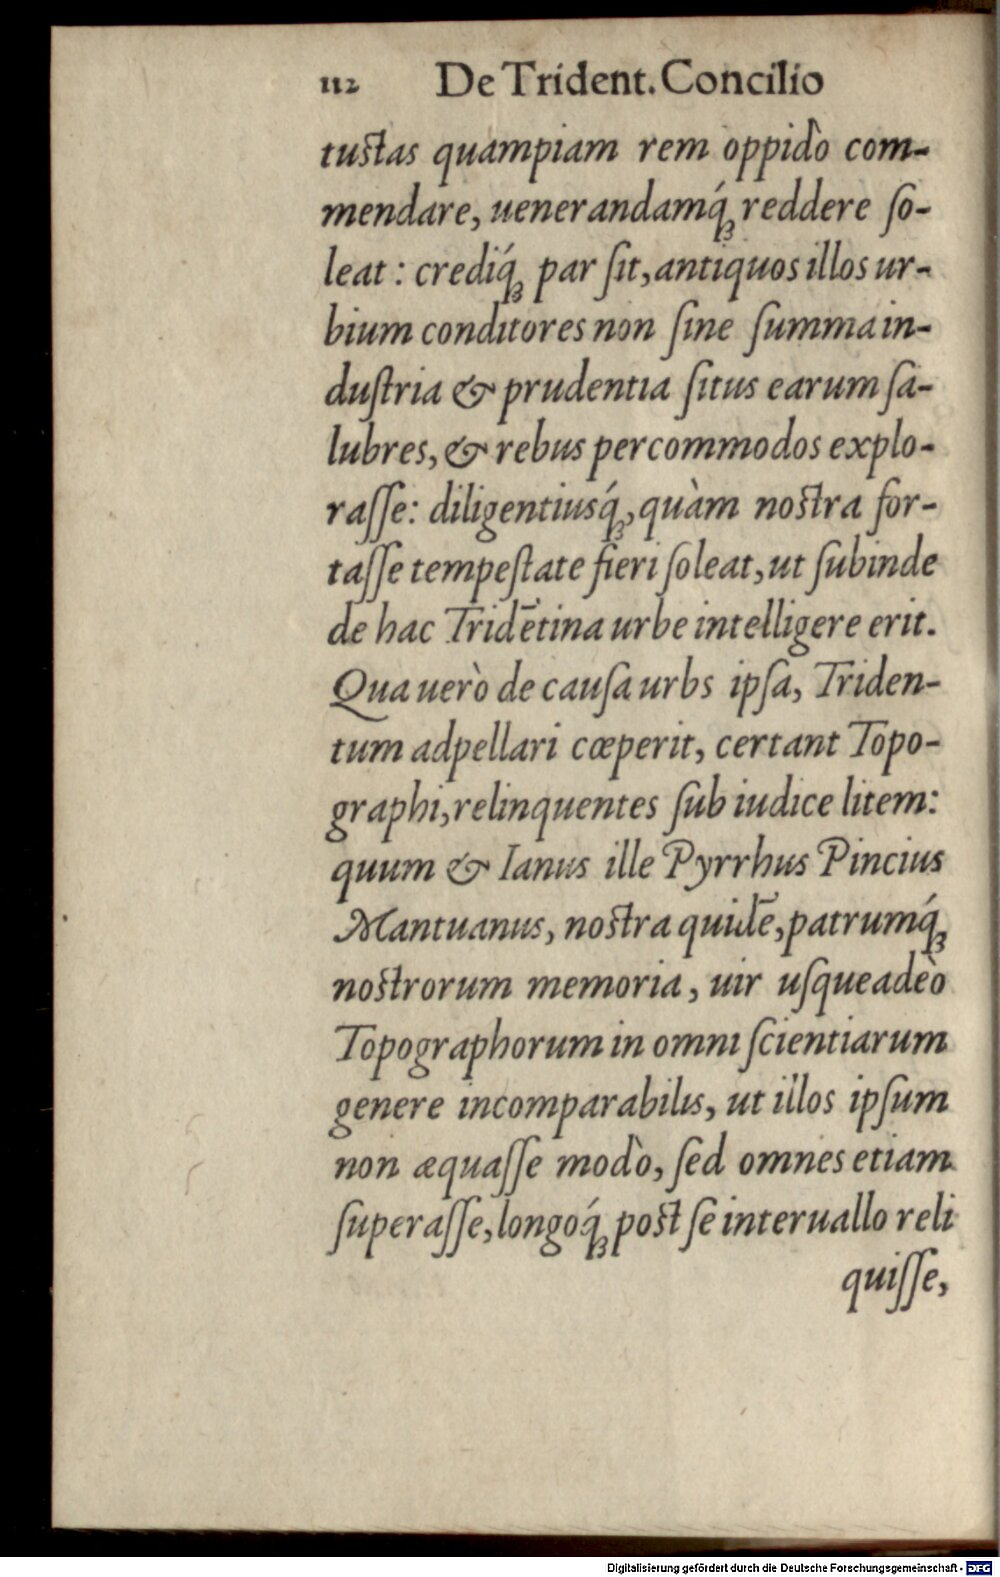 112 De Trident. Concilio
tustas quampiam rem oppidò com-
mendare, uenerandamq́ꝫ reddere ſo-
leat: crediq́ꝫ par ſit, antiquos illos ur-
bium conditores non ſine ſumma in-
duſtria & prudentia ſitus earum ſa-
lubres, & rebus percommodos explo-
raſſe: diligentiusq́ꝫ, quàm noſtra for-
taſſe tempeſtate fieri ſoleat, ut ſubinde
de hac Tridētina urbe intelligere erit.
Qua uerò de cauſa urbs ipſa, Triden-
tum adpellari cœperit, certant Topo-
graphi, relinquentes ſub iudice litem:
quum & Ianus ille Pyrrhus Pincius
Mantuanus, noſtra quidē, patrumq́ꝫ
noſtrorum memoria, uir uſqueadeò
Topographorum in omni ſcientiarum
genere incomparabilis, ut illos ipſum
non æquaſſe modò, ſed omnes etiam
ſuperaſſe, longoq́ꝫ poſt ſe interuallo reli
quiſſe,
Digitalisierung gefördert durch die Deutsche Forschungsgemeinschaft - DFG